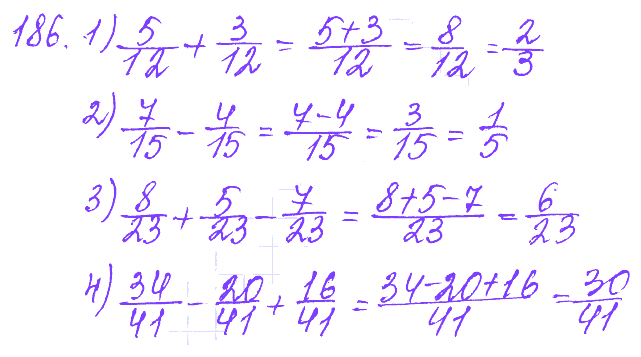 186. 1) 5/12 + 3/12 = (5+3)/12 = 8/12 = 2/3
2) 7/15 - 4/15 = (7-4)/15 = 3/15 = 1/5
3) 8/23 + 5/23 - 7/23 = (8+5-7)/23 = 6/23
4) 34/41 - 20/41 + 16/41 = (34-20+16)/41 = 30/41